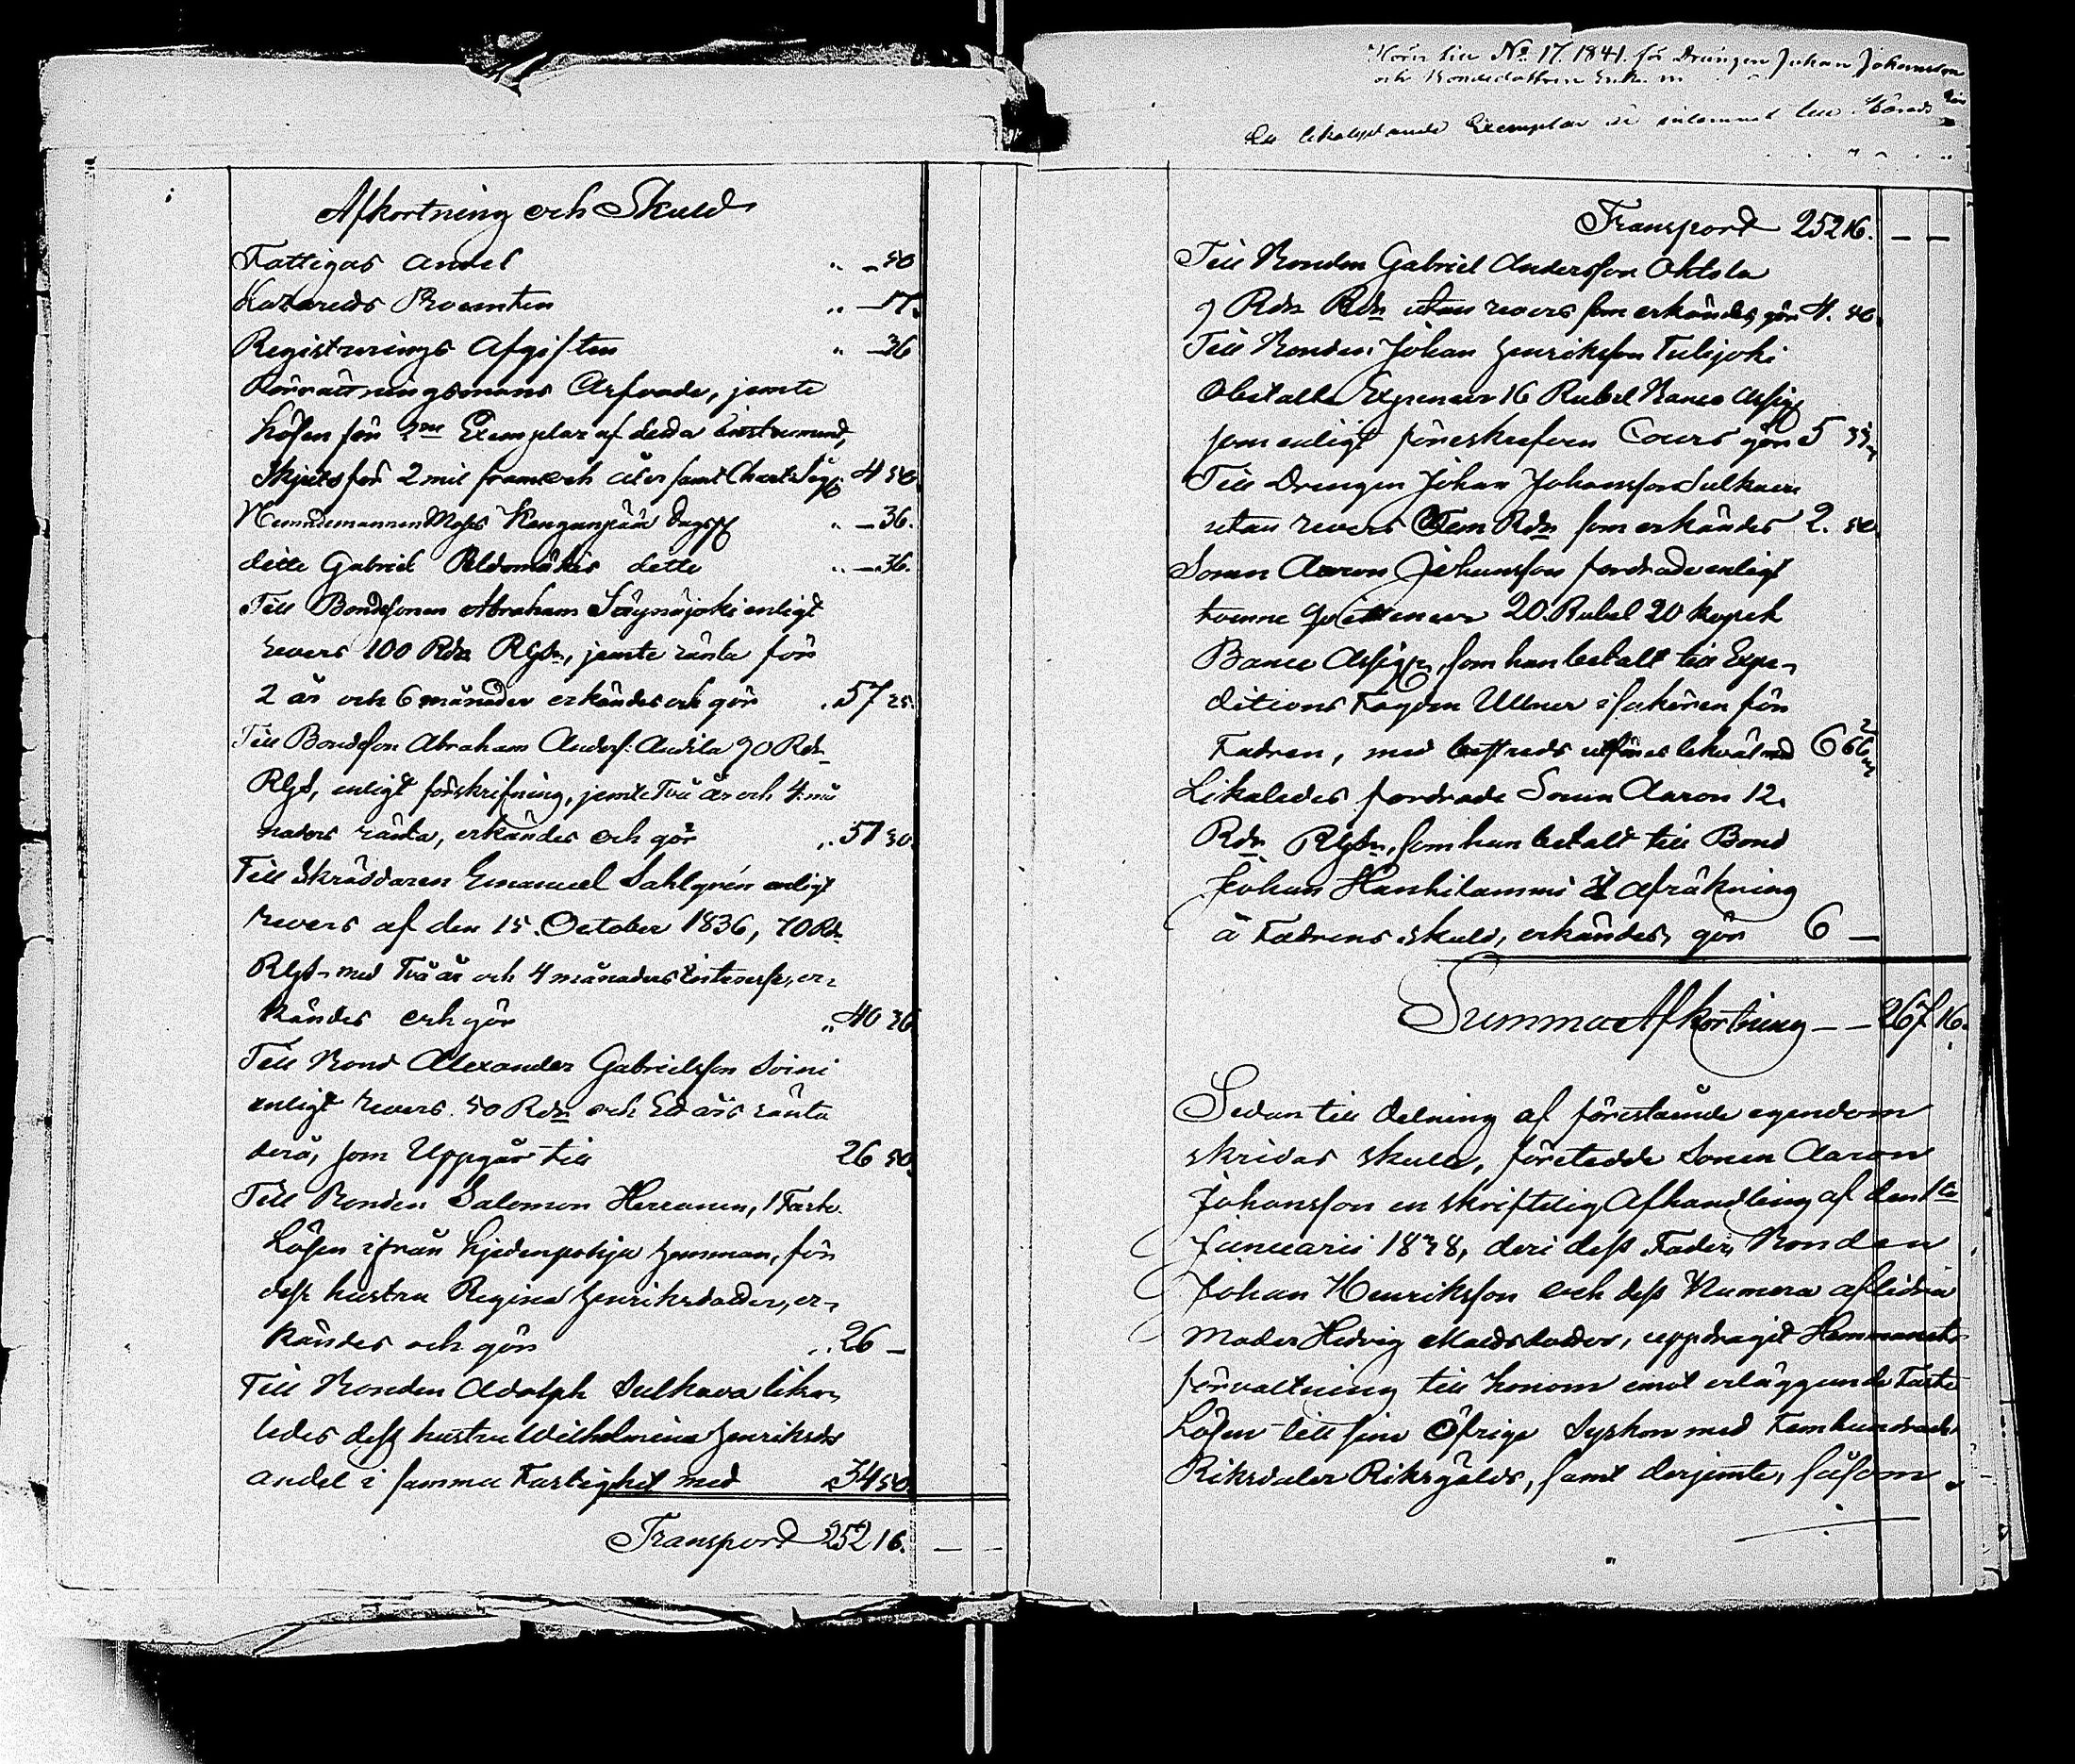 Afkortning och Skuld
Fattigas andel " — 50
Lazareds Procenten " — 17.
Registrerings Afgiften " — 36
Förrättningsmans Arfvode, jemte
Lösen för 2ne Exemplar af detta Instrument,
Skjuts för 2 mil fram och åter samt Chart: Sig: 4 50
Nemndemannen Moses Kanganpää Dagsp " — 36.
ditto Gabriel Peldomäkis detto " — 36.
Till Bondesonen Abraham Säynäjoki enligt
revers 100 Rdr Rgds, jemte ränta för
2 år och 6 månader erkändes och gör " 57 25.
Till Bondeson Abraham Anders: Autila 90 Rdr
Rgds, enligt förskrifning, jemte Två år och 4 må
naders ränta, erkändes och gör " 51 30.
Till Skräddaren Emanuel Sahlgrén enligt
revers af den 15. October 1836, 70 Rdr
Rgds med Två år och 4 månaders interesse, er-
kändes och gör " 40 36
Till Bond Alexander Gabrielsson Soini
enligt revers 50 Rdr och Ett års ränta
derå, som Uppgår till 26 50.
Till Bonden Salomon Herranen, i Faste
Lösen ifrån hemman, för
dess hustru Regina Henriksdotter, er-
kändes och gör " 26 —
Till Bonden Adolph Sulkava lika-
ledes dess hustru Wilhelmina Henriksds
andel i samma Fastighet med 34 50.
Transport 252 16.
Hörer till No 17. 1841. för Drängen Johan Johansson
och Bondedottren
Ett likalydande Exemplar är inlemnat till Härads
Transport 252 16. — —
Till Bonden Gabriel Andersson Ohtola
9 Rdr Rdr utan revers som erkändes, gör 4. 50.
Till Bonden Johan Henriksson Tulijoki
Obetalte Expenser 16 Rubel Banco Assign
som enligt föreskrefven Cours gör 5
Till Drengen Johan Johansson Sulkava
utan revers Fem Rdr som erkändes 2. 50
Sonen Aaron Johansson fordrade enligt
tvenne qvittencer 20 Rubel 20 kopek
Banco Assign, som han betalt till Expe-
ditions Fogden Ullner i sakören för
Fadren, med utföres likväl med 6
Likaledes fordrade Sonen Aaron 12.
Rdr Rgds, som han betalt till Bond
Johan Hanhilammi i afräkning
å Fadrens skuld, erkändes, gör 6 —
Summa Afkortning — — 267 16.
Sedan till delning af förestående egendom
skridas skulle, företedde Sonen Aaron
Johansson en skriftelig Afhandling af den 1ta
Januarii 1838, deri dess Fader, Bonden
Johan Henriksson och dess Numera aflidna
Moder Hedvig Mattsdotter, uppdragit Hemmanets
förvaltning till honom emot erläggande Faste
Lösen till sine Öfrige Syskon med Femhundrade
Riksdaler Riksgälds, samt derjemte, såsom